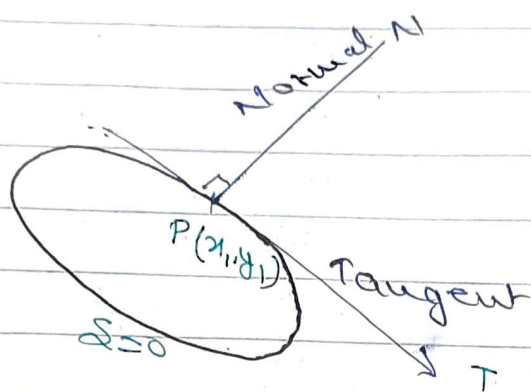 Normal N
P(x₁,y₁)
Tangent
S=0
T